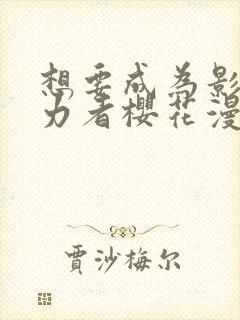 想要成为影
力者樱花漫
贾沙梅尔